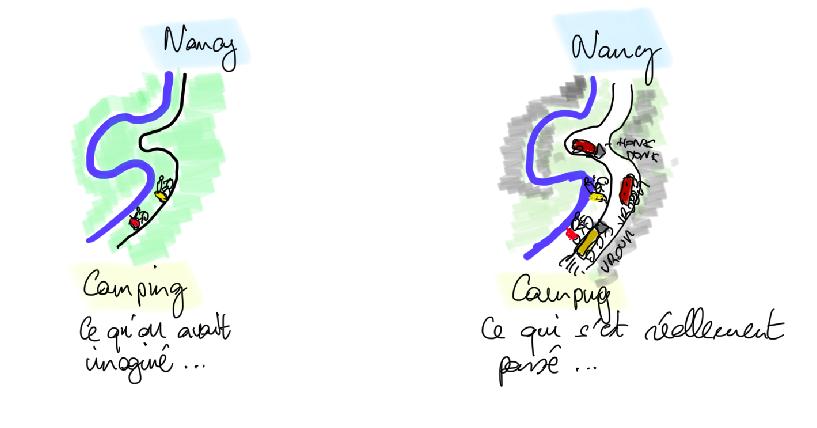 Nancy
Camping
Ce qu'on avait
imaginé ...
Nancy
HONK
DONK
VROOM
VROUM
Camping
Ce qui s'est réellement
passé ...